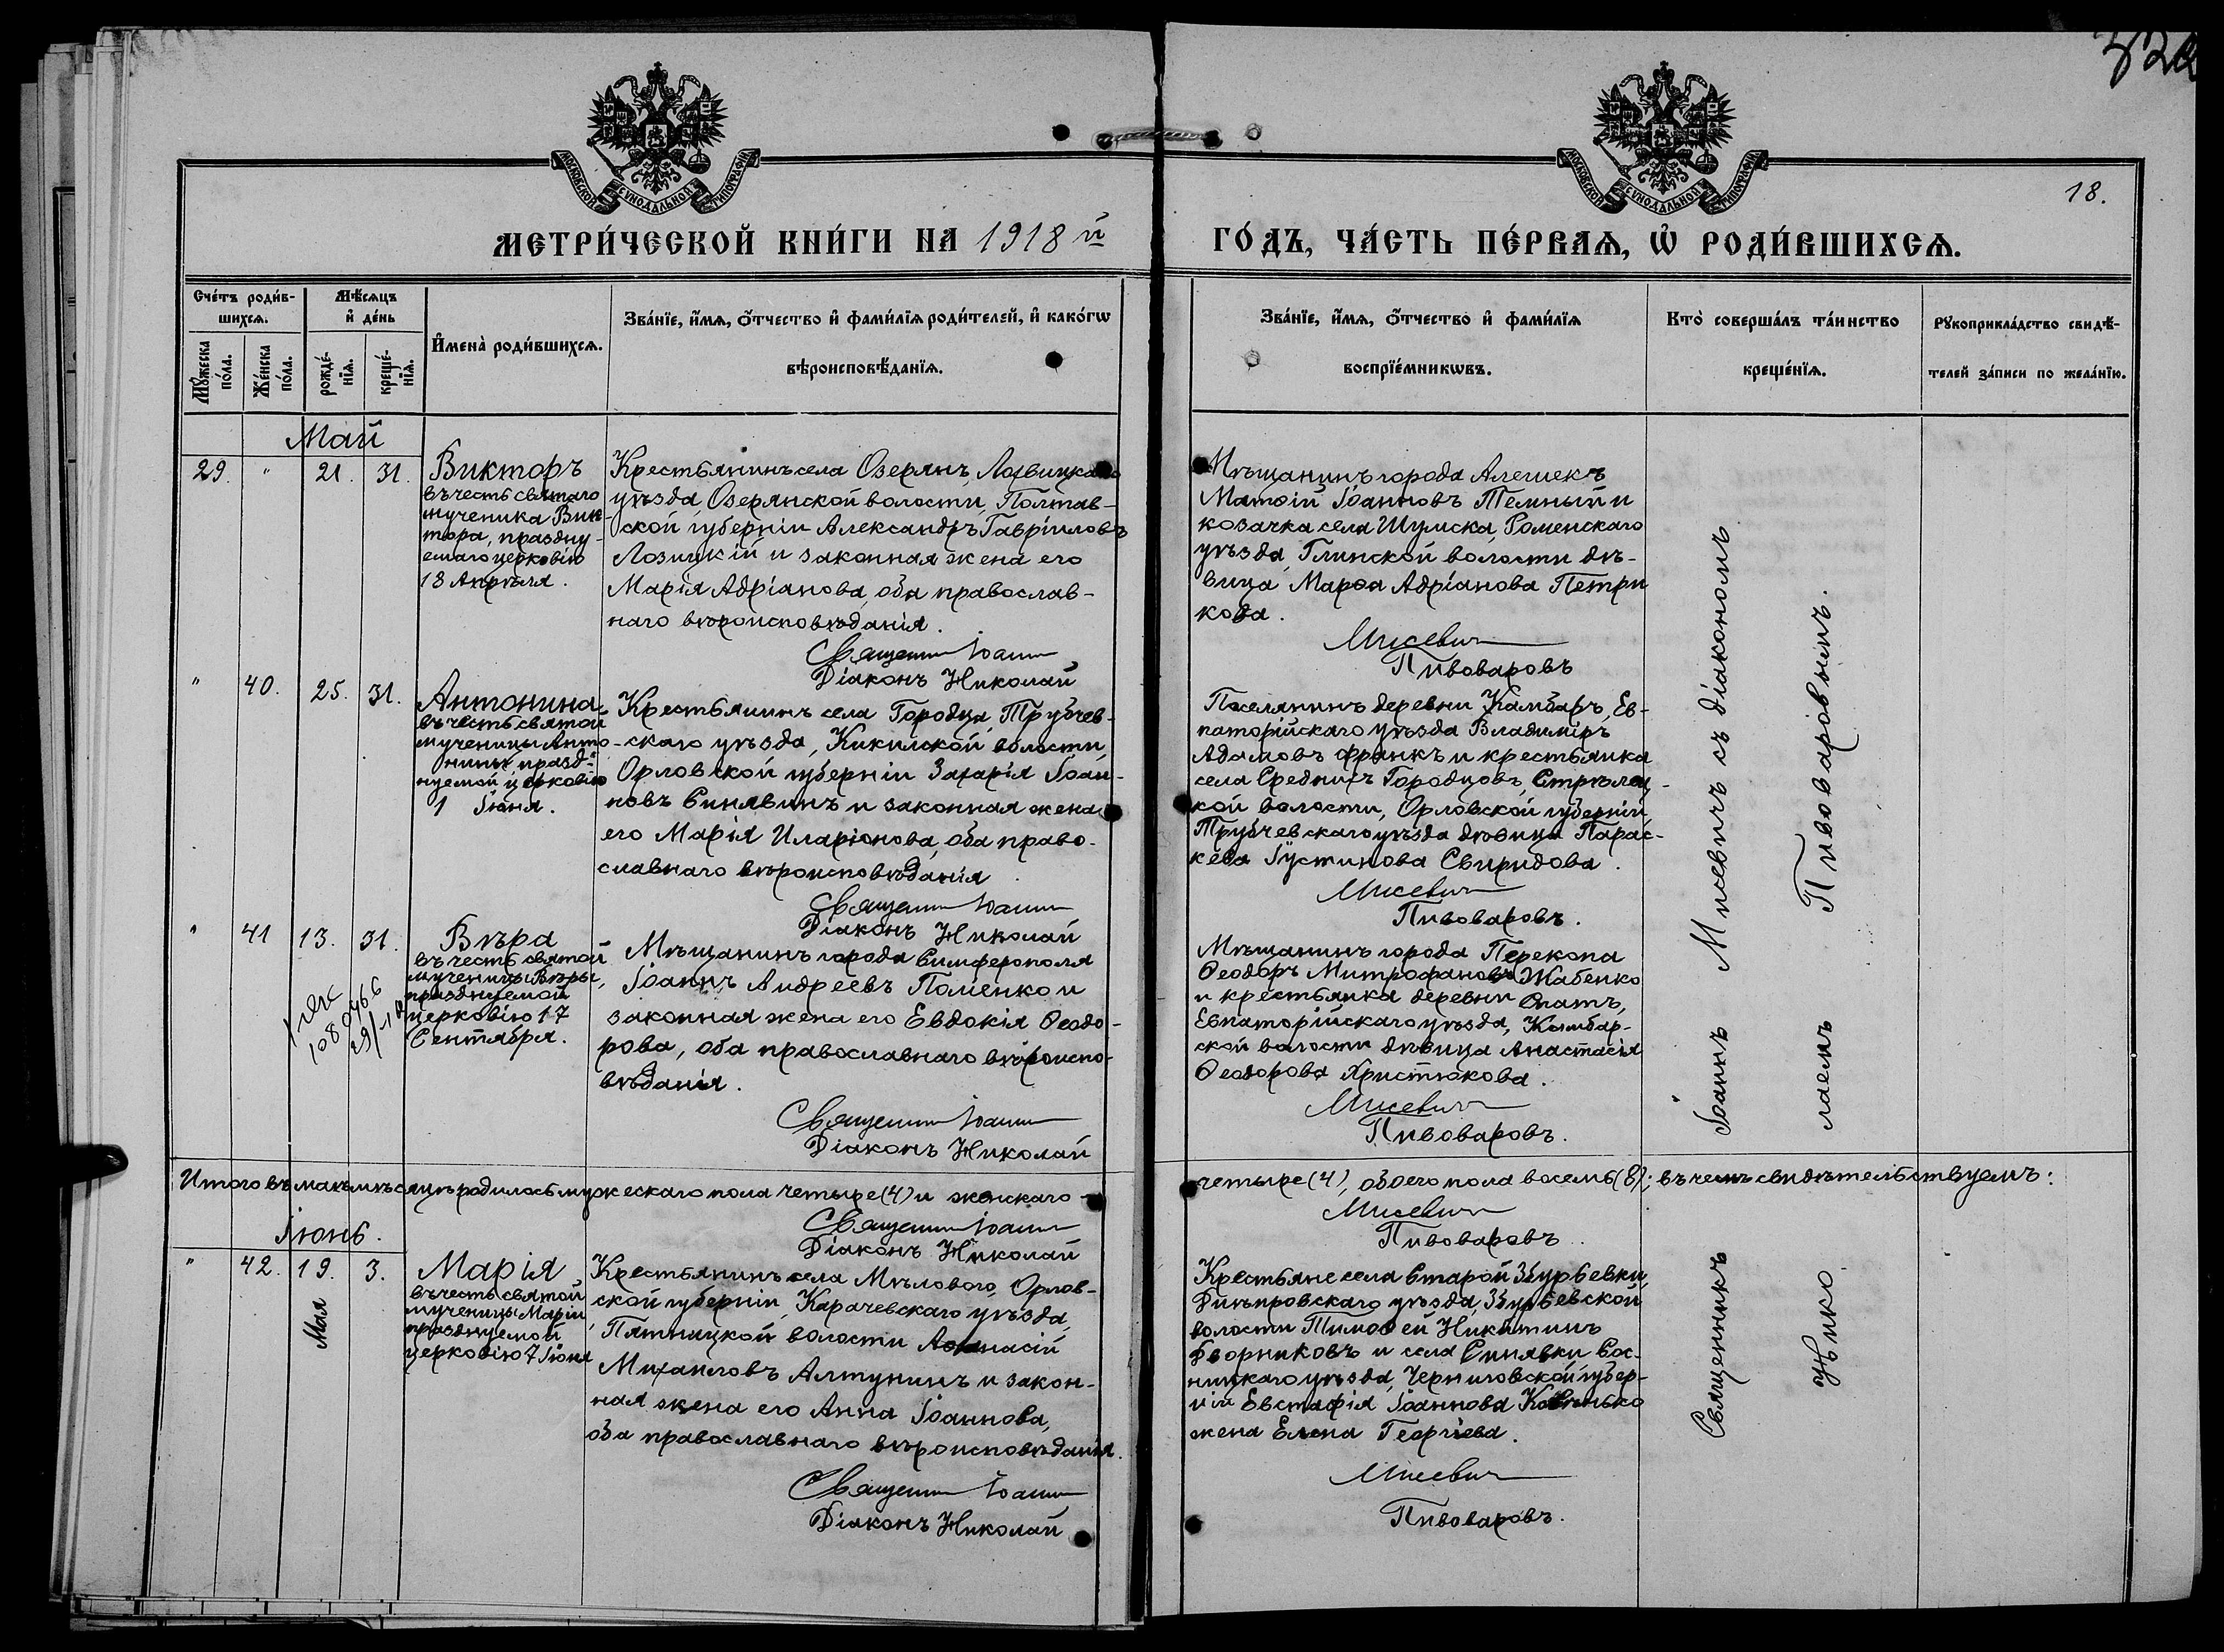 18.
МОСКОВСКОЙ СУНОДАЛЬНОЙ ТИПОГРАФІИ
МОСКОВСКОЙ СУНОДАЛЬНОЙ ТИПОГРАФІИ
МЕТРИ́ЧЕСКОЙ КНИ́ГИ НА 1918 й
ГО́ДЪ, ЧА́СТЬ ПЕ́РВАѦ, Ѡ҆ РОДИ́ВШИХСѦ.
Сче́тъ роди́в-
шихсѧ.
Мꙋ́жеска
по́ла.
Же́нска
по́ла.
Мѣ́сѧцъ
и҆ де́нь
рожде́-
нїѧ.
креще́-
нїѧ.
И҆мена̀ роди́вшихсѧ.
Зва́нїе, и҆́мѧ, ѻ҆́тчество и҆ фами́лїѧ роди́телей, и҆ како́гѡ
вѣроисповѣ́данїѧ.
Зва́нїе, и҆́мѧ, ѻ҆́тчество и҆ фами́лїѧ
воспрїе́мникѡвъ.
Кто̀ соверша́лъ та́инство
креще́нїѧ.
Рꙋкоприкла́дство свидѣ́-
телей за́писи по жела́нїю.
Май
29. " 21. 31.
Викторъ
въ честь святаго
мученика Вик-
тора, праздну-
емаго церковію
18 Апрѣля.
Крестьянинъ села Озерянъ, Лохвицкаго
уѣзда, Озерянской волости, Полтав-
ской губерніи Александръ Гавріиловъ
Лозицкій и законная жена его
Марія Адріанова, оба православ-
наго вѣроисповѣданія.
Священник Іоанн
Діаконъ Николай
Мѣщанинъ города Алешекъ
Матѳій Іоанновъ Темный и
козачка села Шумска, Роменскаго
уѣзда, Глинской волости дѣ-
вица Марѳа Адріанова Петри
кова.
Мисевич
Пивоваровъ
" 40. 25. 31.
Антонина
въ честь святой
мученицы Анто-
нины, празд-
нуемой церковію
1 Іюня.
Крестьянинъ села Городца, Трубчев-
скаго уѣзда, Кикилской волости
Орловской губерніи Захарія Іоан-
новъ Синявинъ и законная жена
его Марія Иларіонова, оба право-
славнаго вѣроисповѣданія
Священник Іоанн
Діаконъ Николай
Поселянинъ деревни Камбаръ, Ев-
паторійскаго уѣзда Владиміръ
Адамовъ Франкъ и крестьянка
села Среднихъ Городцовъ, Стрѣлец-
кой волости, Орловской губерніи
Трубчевскаго уѣзда дѣвица Парас-
кева Іустинова Свиридова.
Мисевич
Пивоваровъ.
" 41 13. 31.
Вѣра
въ честь святой
мученицы Вѣры,
празднуемой
церковію 17
Сентября.
Мѣщанинъ города Симферополя
Іоаннъ Андреевъ Поменко и
законная жена его Евдокія Ѳеодо-
рова, оба православнаго вѣроиспо-
вѣданія.
Священник Іоанн
Діаконъ Николай
Мѣщанинъ города Перекопа
Ѳеодоръ Митрофановъ Жабенко
и крестьянка деревни Спатъ,
Евпаторійскаго уѣзда, Камбар-
ской волости дѣвица Анастасія
Ѳеодорова Христюкова.
Мисевич
Пивоваровъ.
Итого въ маѣ мѣсяцѣ родилось мужескаго пола четыре (4) и женскаго -
четыре (4), обоего пола восемь (8); въ чемъ свидѣтельствуемъ:
Священник Іоанн
Діаконъ Николай
Мисевич
Пивоваровъ.
Іюнь.
" 42. 19. 3.
Мая
Марія
въ честь святой
мученицы Маріи
празднуемой
церковію 7 Іюня
Крестьянинъ села Мѣлового, Орлов-
ской губерніи, Карачевскаго уѣзда,
Пятницкой волости Аѳанасій
Михаиловъ Алтунинъ и закон-
ная жена его Анна Іоаннова,
оба православнаго вѣроисповѣданія.
Священник Іоанн
Діаконъ Николай
Крестьяне села Старой Збурьевки,
Днѣпровскаго уѣзда, Збурьевской
волости Тимоѳей Никитинъ
Дворниковъ и села Синявки Сос-
ницкаго уѣзда, Черниговской губер-
ніи Евстафія Іоаннова Ковѣнько
жена Елена Георгіева.
Мисевич
Пивоваровъ.
Священникъ Іоаннъ Мисевичъ съ діакономъ
Нико лаемъ Пивоваровымъ.